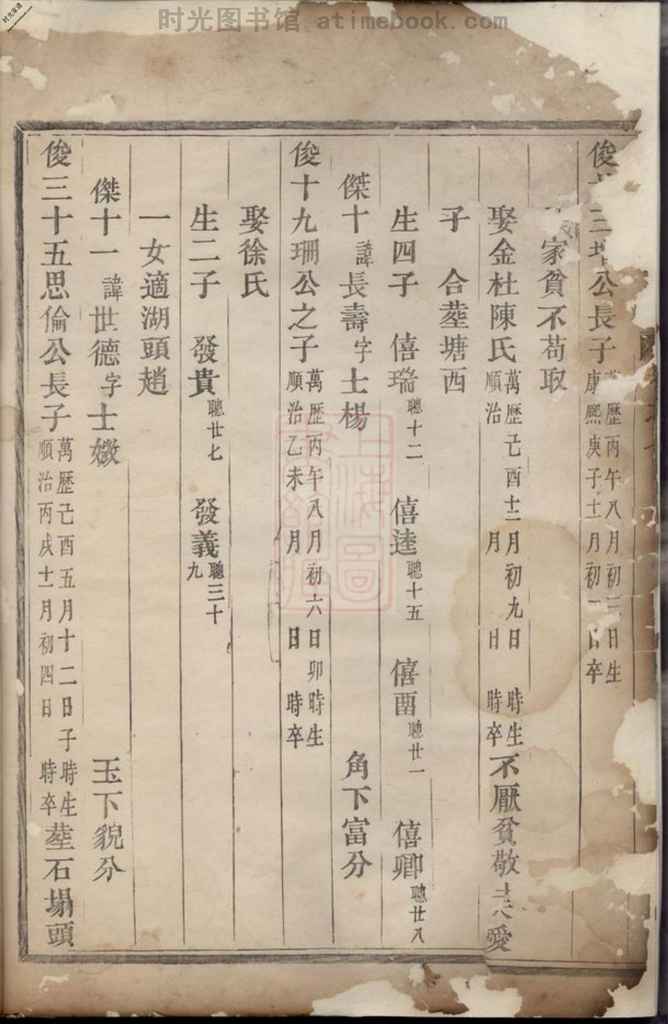 时光图书馆 atimebook.com
俊 三 公長子 萬歷丙午八月初三日生 康熙庚子十一月初 日卒
家貧不苟取
娶金杜陳氏 萬歷己酉十二月初九日 時生 順治 月 日 時卒 不厭貧敬 愛
子 合塟塘西
生四子 僖瑞 聰十二 僖逵 聰十五 僖 聰廿一 僖卿 聰廿八
傑十 諱長壽字士楊 角下富分
俊十九珊公之子 萬歷丙午八月初六日卯時生 順治乙未 月 日 時卒
娶徐氏
生二子 發貴 聰廿七 發義 聰三十九
一女適湖頭趙
傑十一 諱世德字士 玉下貌分
俊三十五思倫公長子 萬歷己酉五月十二日子時生 順治丙戌十一月初四日 時卒 塟石塌頭